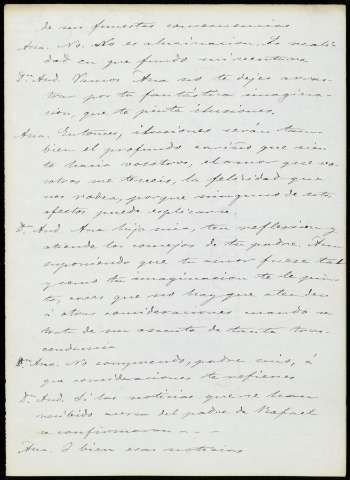 de un funestas consecuencias
Ana. No. No es alucinacion. Es reali-
dad en que fundo mi ventura
Dn. And. Vamos Ana no te dejes arras-
trar por tu fantástica imagina-
cion, que te pinta ilusiones.
Ana. Entonces, ilusiones serán tam-
bien el profundo cariño que sien-
to hacia vosotros, el amor que vo-
sotros me teneis, la felicidad que
nos rodea, porque ninguno de estos
afectos puedo esplicarme.
Dn. And. Ana hija mia, ten reflexion y
atiende los consejos de tu padre. Aun
suponiendo que tu amor fuese tal
y como tu imaginacion te le pin-
ta, crees que no hay que atender
á otras consideraciones cuando se
trata de un asunto de tanta tras-
cendencia
Ana. No comprendo, padre mio, á
que consideraciones te refieres
Dn. And. Si las noticias que se han
recibido acerca del padre de Rafael
se confirmaran - - -
Ana. Y bien esas noticias